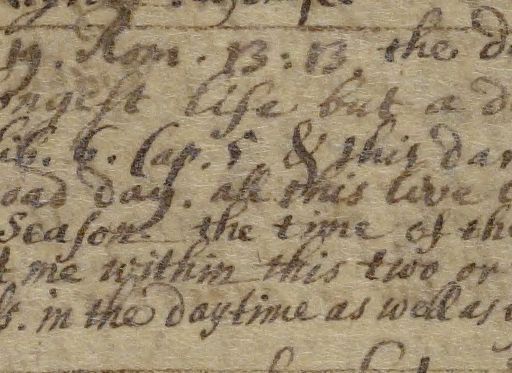 19. Rom. 13:13, the d
ongest life but a d
lib. 6. Cap. 5. & this da
oad day. all this live
Season the time of the
t me within this two or
s. in the daytime as well as